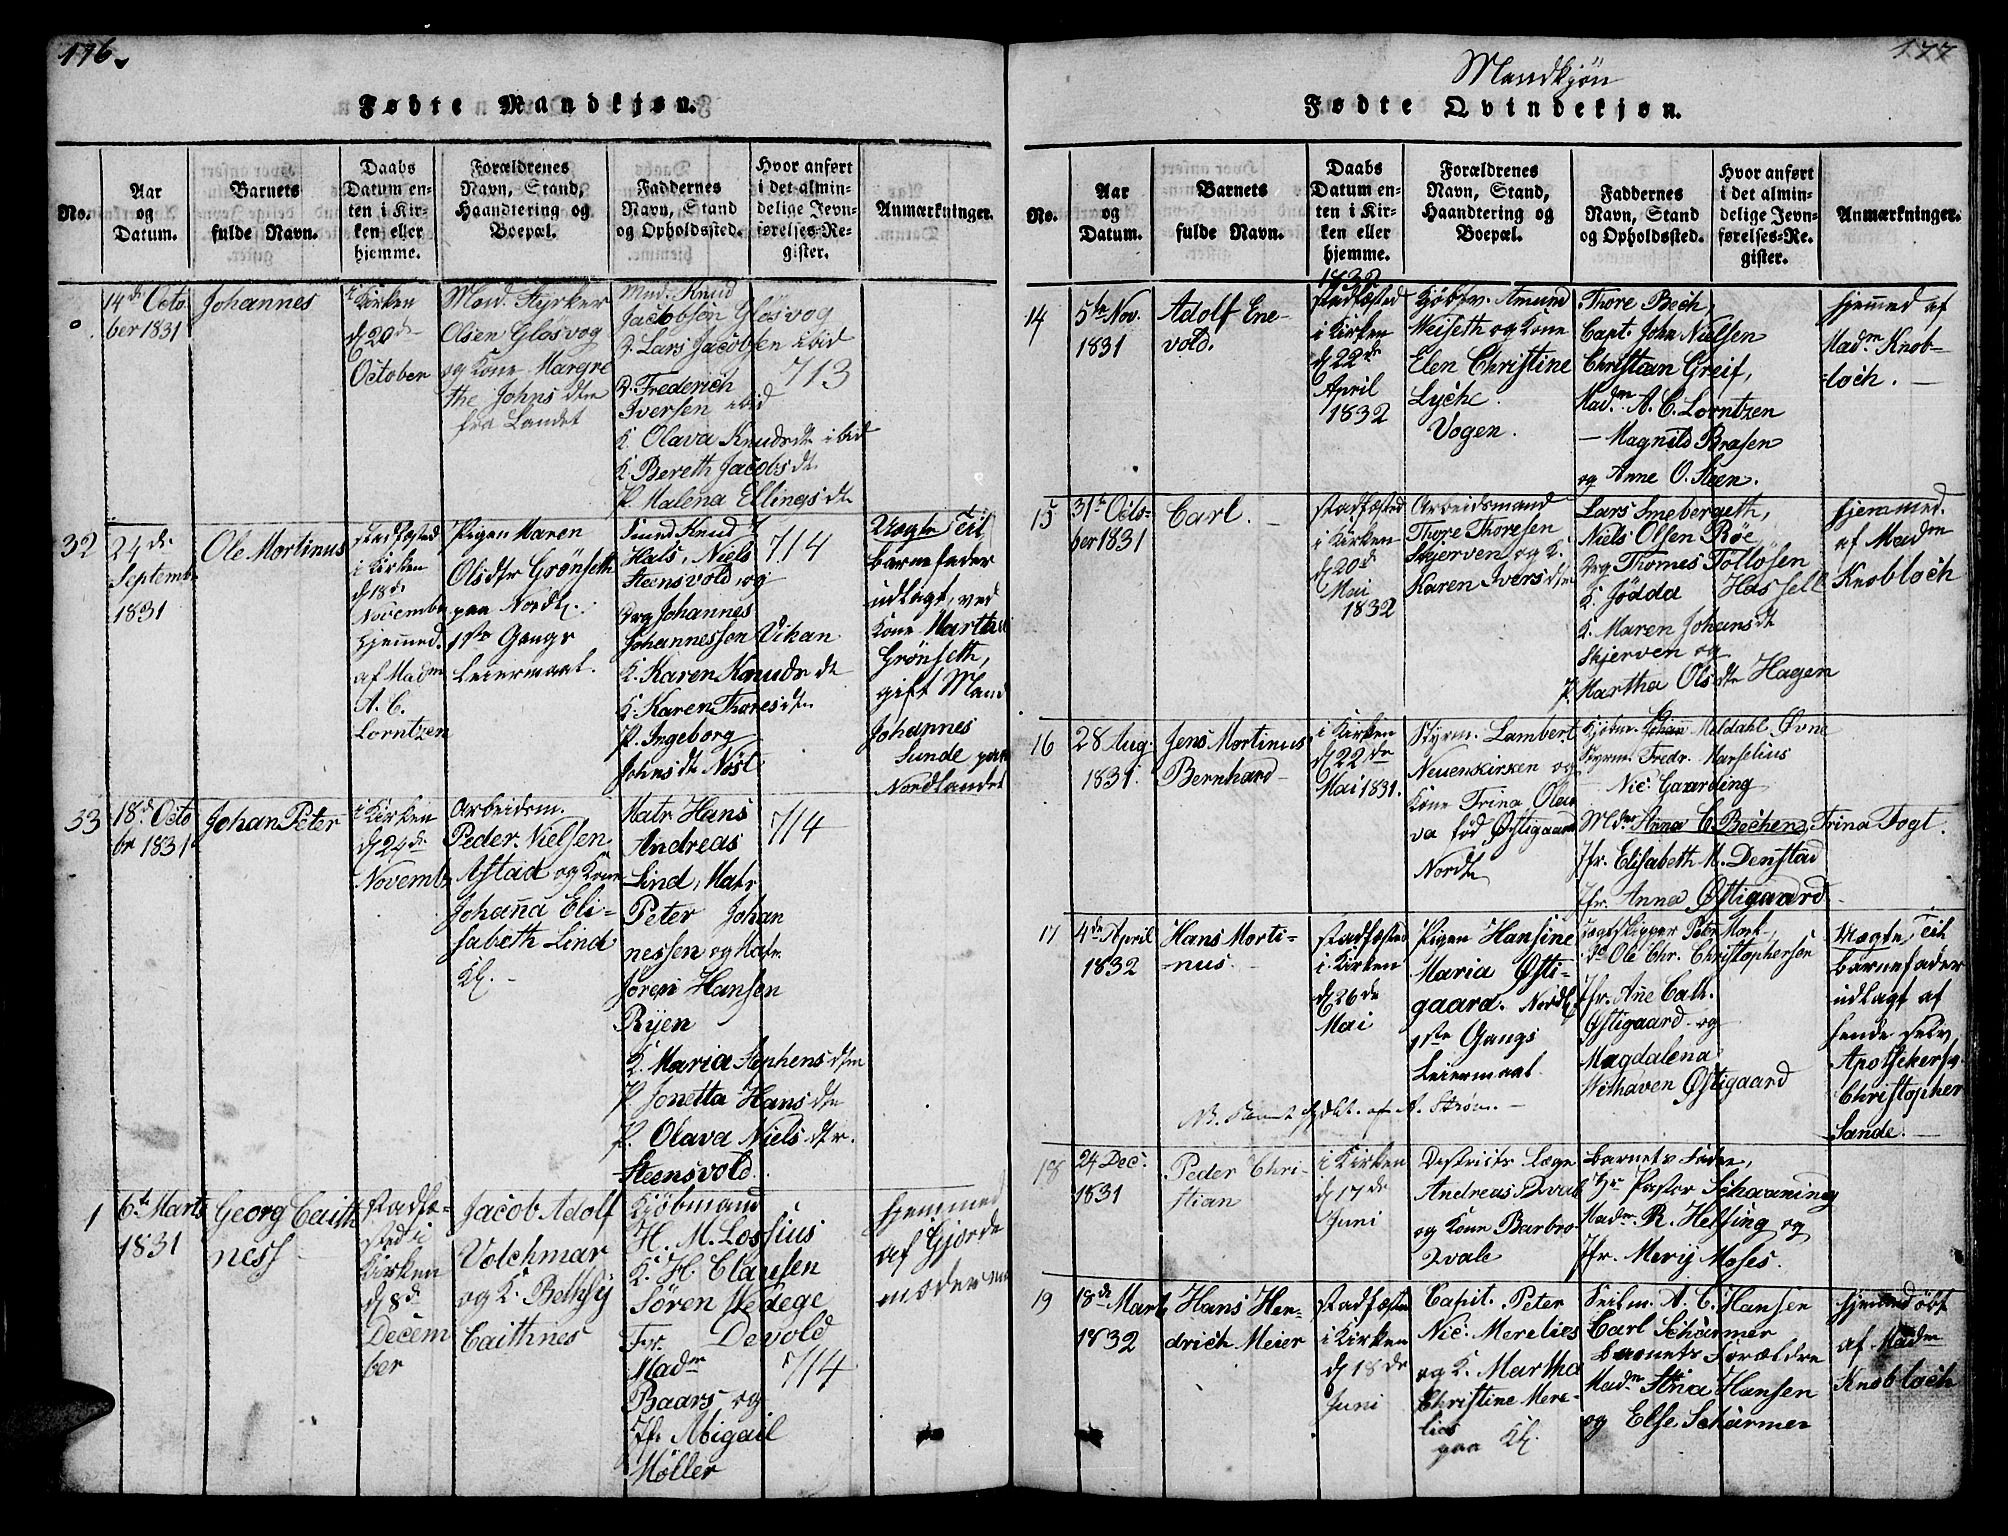 176.
Fødte Mandkjøn.
No.
Aar
og
Datum.
Barnets
fulde Navn.
Daabs
Datum en-
ten i Kir-
ken eller
hjemme.
Forældrenes
Navn, Stand,
Haandtering og
Boepæl.
Faddernes
Navn, Stand
og Opholdssted.
Hvor anført
i det almin-
delige Jevn-
førelses-Re-
gister.
Anmærkninger.
14de Octo
ber 1831
Johannes
i Kirken
d 20de
October
Mad. Styrker
Olsen Glosvog
og Kone Margre
the Johnsdtr
fra Landet
Mad. Knud
Jacobsen Glosvog
D. Lars Jacobsen ibid
D. Frederich
Iversen ibid
K. Olava Knudsdt ibid
K. Bereth Jacobsdt
P. Malena Ellingsdt
713
32
24de
Septemb
1831
Ole Mortinus
stadfæsted
i Kirken
d 18de
Novembr
hjemmed.
af Madm
A. C.
Lorntzen
Pigen Maren
Olsdtr Grönseth
paa Nordl.
1ste Gangs
Leiermaal.
Knud
Hals, Niels
Steensvold, og
Drg Johannes
Johannessen Vikan
K. Karen Knudsdt
K. Karen Thoresdtr
P. Ingeborg
Johnsdt Nöst
714
Uægte Teil
barnefader
udlagt, ved
Kone Martha
Grönseth,
gift Mand
Johannes
Sunde paa
Nordlandet
33
18de Octo
br 1831
Johan Peter
i Kirken
d 24de
Novemb
Arbeidsm.
Peder Nielsen
Astad og Kone
Johanna Eli-
sabeth Lind
Kl.
Matr Hans
Andreas
Lind, Matr
Peter Johan
nessen og Matr
Sören Hansen
Ryen
K. Maria Stephensdtr
P. Jonetta Hansdtr
P. Olava Nielsdtr.
Steensvold.
714
1
6te Marts
1831
Georg Caith
ness
stadfæ-
sted i
Kirken
d 8de
Decem
ber
Jacob Adolf
Volchmar
og K. Bethsy
Caithnes
Kjöbmand
H. M. Lossius
K. H. Clausen
Sören Wedege
Devold
Fr.
Madm
Baars, og
Jfr. Abigail
Möller
714
hjemmed
af Gjorde
moderen
177
Mandkjön
Fødte Qvindekjøn.
No.
Aar
og
Datum.
Barnets
fulde Navn.
Daabs
Datum en-
ten i Kir-
ken eller
hjemme.
Forældrenes
Navn, Stand,
Haandtering og
Boepæl.
Faddernes
Navn, Stand
og Opholdssted.
Hvor anført
i det almin-
delige Jevn-
førelses-Re-
gister.
Anmærkninger.
14
5te Nov.
1831
Adolf Ene-
vold.
1832
stadfæsted
i Kirken
d 22de
April
1832
Kjöbm. Amund
Weiseth og Kone
Elen Christine
Lyche
Vogen.
Thore Bech
Capt. John Nielsen
Christian Greif,
Madm. A. C. Lorntzen
— Magnild Brasen
og Anne O. Steen.
hjemmed af
Madm Knob-
loch. —
15
31te Octo-
ber 1831
Carl.
stadfæsted
i Kirken
d 20de
Mai
1832
Arbeidsmand
Thore Thoresen
Skjerven og K.
Karen Iversdtr
Lars Snebergeth,
Niels Olsen Röe,
Drg Thomes Tollosen
K. Jödda Hassell
K. Maren Johansdt
Skjerven og
P. Martha Olsdtr Hagen
hjemmed.
af Madm
Knobloch
16
28 Aug.
1831.
Jens Mortinus
Bernhard
i Kirken
d 22de
Mai 1831.
Styrm. Lambert
Neuenkirken og
Kone Trina Olea
va föd Östigaard
Nordl.
Kjöbm. Johan Meldahl Övre
Styrm. Fredr. Marselius
Nic: Gaarding
Mdm Anna C. Bechen, Trina Fogt.
Jfr. Elisabeth M. Denstad
Jfr. Anna Östigaard
17
4de April
1832
Hans Morti-
nus.
stadfæsted
i Kirken
d 26de
Mai
Pigen Hansine
Maria Östi-
gaard. Nordl.
1ste Gangs
Leiermaal.
Jagtskipper Peter Mort.
do Ole Chr. Christophersen
Jfr. Ane Cath.
Östigaard og
Magdalena
Withaven Östigaard
Uægte Teil
barnefader
udlagt af
hende selv,
Apothekersv.
Christopher
Sande. —
18
24 Dec.
1831
Peder Chri-
stian
i Kirken
d 17de
Juni
Districts Læge
Andreas Qvale
og Kone Barbro
Qvale
barnets Fader,
Hr Pastor Schaaning
Madm. R. Helsing og
Jfr. Mery Moses.
19
18de Mart
1832
Hans Hen-
drich Meier
stadfæsted
i Kirken
d 18de
Juni
Capit. Peter
Nic: Merelies
og K. Martha
Christine Mere-
lies
paa Kl.
Seilm. A. C. Hansen
Carl Schärmer
barnets Forældre
Madm. Stina Hansen
og Else Schärmer
hjemmedöbt
af Madm
Knobloch